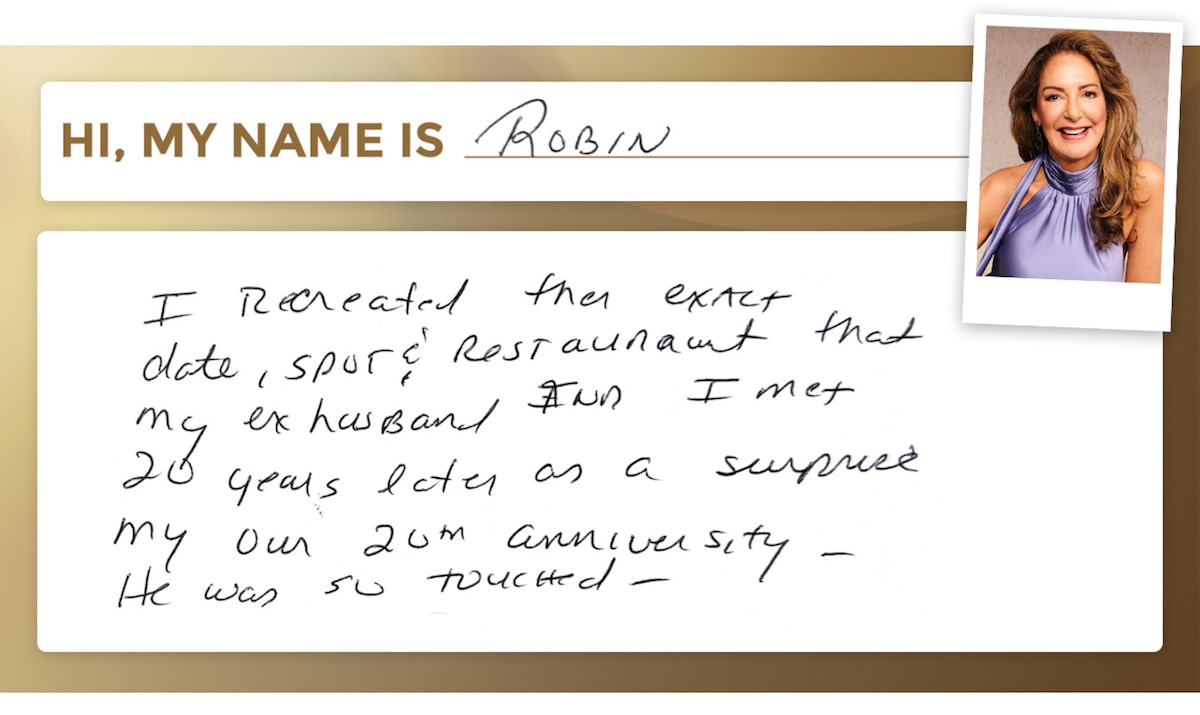 HI, MY NAME IS ROBIN
I Recreated ther exact
date, spot & Restauraunt that
my ex husband And I met
20 years later as a surprise
my our 20th anniversity –
He was so touched –